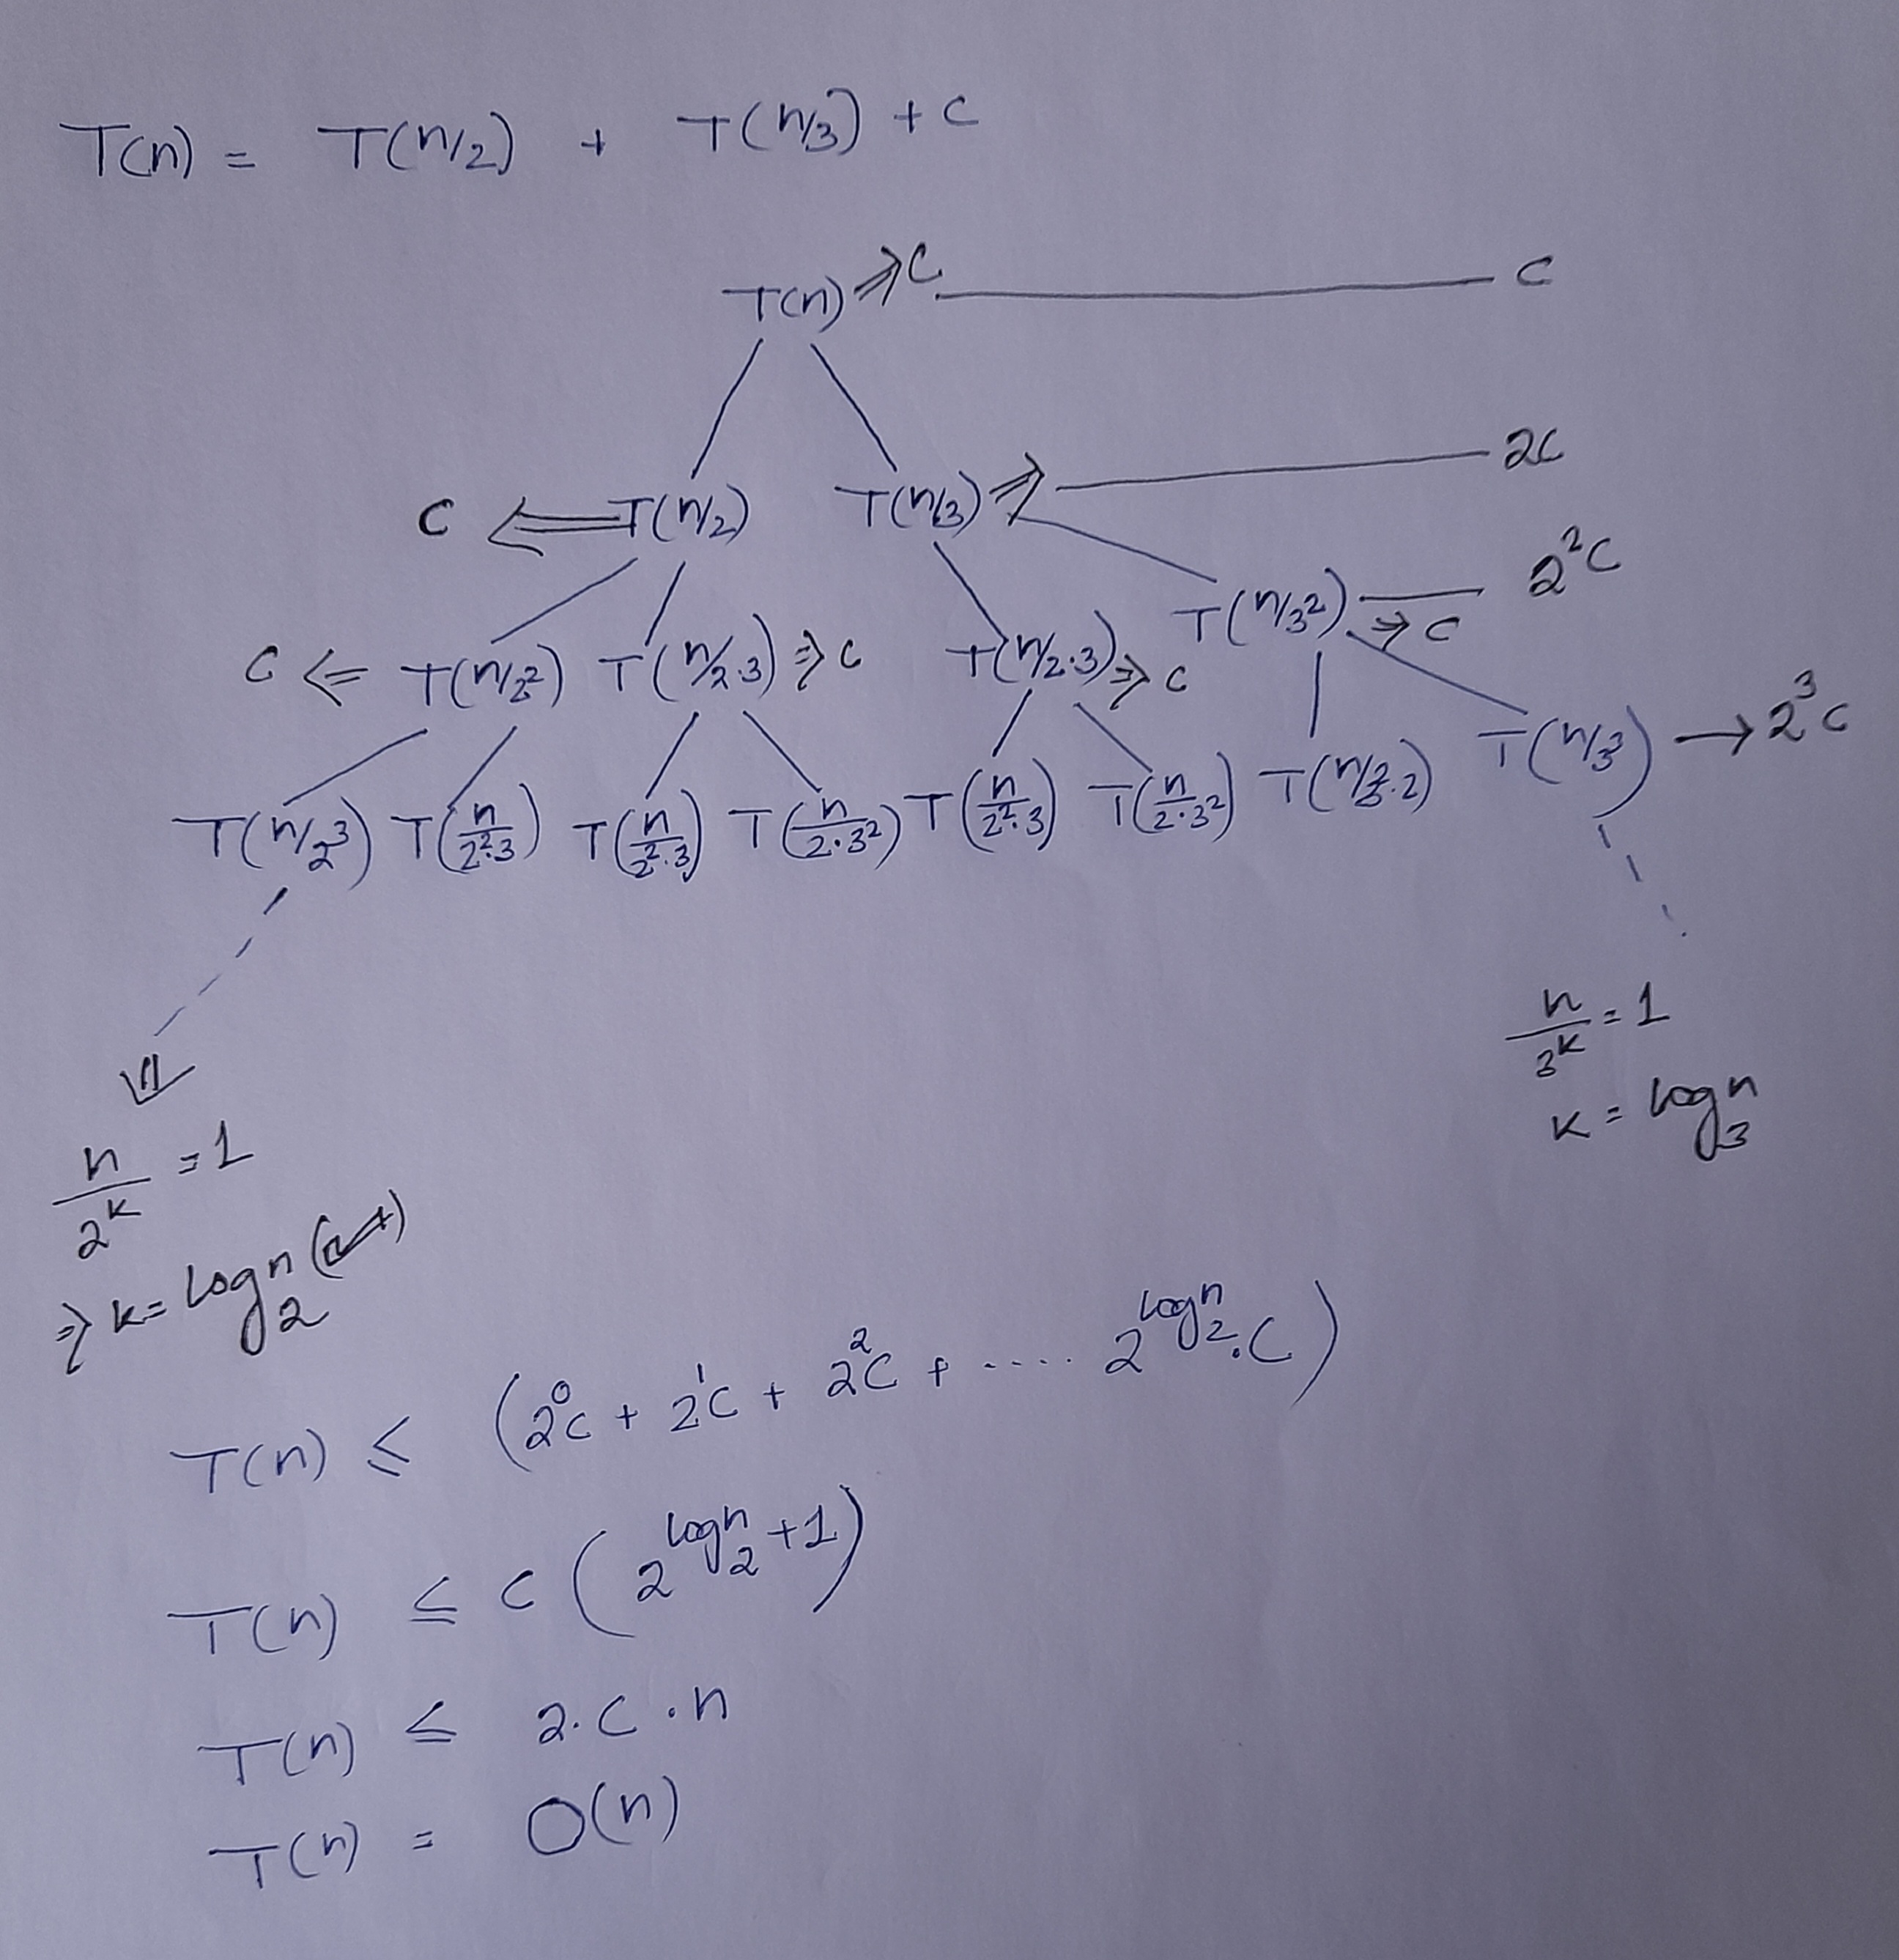 T(n) = T(n/2) + T(n/3) + C
T(n) ⇒ C — C
C ⇐ T(n/2) T(n/3) ⇒ — 2C
C ⇐ T(n/2²) T(n/2·3) ⇒ C T(n/2·3) ⇒ C T(n/3²) ⇒ C — 2²C
T(n/2³) T(n/2²·3) T(n/2²·3) T(n/2·3²) T(n/2²·3) T(n/2·3²) T(n/3²·2) T(n/3³) → 2³C
n/2^k = 1
⇒ k = log₂n
n/3^k = 1
k = log₃n
T(n) ≤ (2⁰C + 2¹C + 2²C + .... 2^(log₂n).C)
T(n) ≤ C (2^(log₂n + 1))
T(n) ≤ 2.C.n
T(n) = O(n)